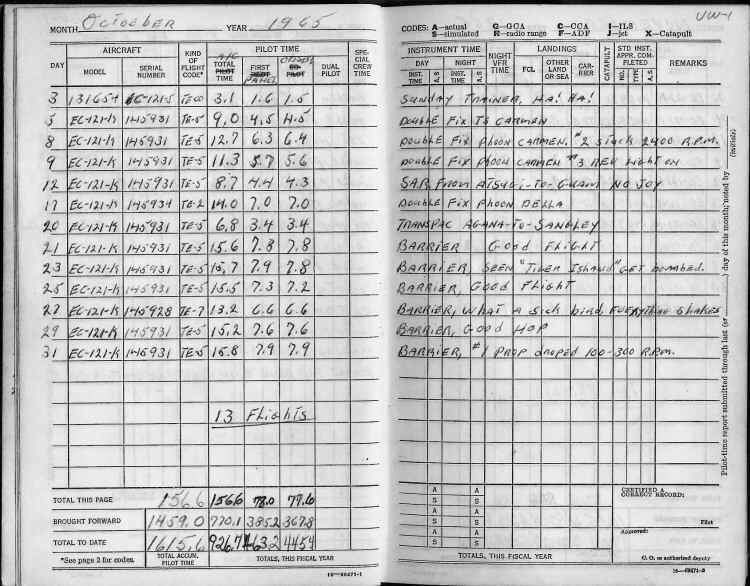 UW-1
MONTH October YEAR 1965
CODES: A—actual G—GCA C—CCA I—ILS
S—simulated R—radio range F—ADF J—jet X—Catapult
DAY AIRCRAFT KIND OF FLIGHT CODE* PILOT TIME SPECIAL CREW TIME
MODEL SERIAL NUMBER A/C TOTAL PILOT TIME FIRST PILOT PANEL CO-PILOT DUAL PILOT
INSTRUMENT TIME NIGHT VFR TIME LANDINGS CATAPULT STD INST. APPR. COMPLETED REMARKS
DAY NIGHT FCL OTHER LAND OR SEA CARRIER NO. TYPE A/S
INST. TIME A/S INST. TIME A/S
3 131654 EC-121-S TE-0 3.1 1.6 1.5 SUNDAY TRAINER, HA! HA!
5 EC-121-K 145931 TE-5 9.0 4.5 4.5 DOUBLE FIX TS CARMEN
8 EC-121-K 145931 TE-5 12.7 6.3 6.4 DOUBLE FIX PHOON CARMEN. #2 STACK 2400 R.P.M.
9 EC-121-K 145931 TE-5 11.3 5.7 5.6 DOUBLE FIX PHOON CARMEN #3 REV LIGHT ON
12 EC-121-K 145931 TE-5 8.7 4.4 4.3 SAR, FROM ATSUGI-TO-GUAM NO JOY
17 EC-121-K 145934 TE-2 14.0 7.0 7.0 DOUBLE FIX PHOON DELLA
20 EC-121-K 145931 TE-5 6.8 3.4 3.4 TRANSPAC AGANA-TO-SANGLEY
21 EC-121-K 145931 TE-5 15.6 7.8 7.8 BARRIER GOOD FLIGHT
23 EC-121-K 145931 TE-5 15.7 7.9 7.8 BARRIER, SEEN "TIGER ISLAND" GET BOMBED.
25 EC-121-K 145931 TE-5 15.5 7.3 7.2 BARRIER, GOOD FLIGHT
27 EC-121-K 145928 TE-7 13.2 6.6 6.6 BARRIER, WHAT A SICK BIRD, EVERYTHING SHAKES
29 EC-121-K 145931 TE-5 15.2 7.6 7.6 BARRIER, GOOD HOP
31 EC-121-K 145931 TE-5 15.8 7.9 7.9 BARRIER, #1 PROP DROPED 100-300 R.P.M.
13 Flights
TOTAL THIS PAGE 156.6 156.6 78.0 77.6
BROUGHT FORWARD 1459.0 770.1 385.2 367.8
TOTAL TO DATE 1615.6 926.7 463.2 445.4
*See page 2 for codes. TOTAL ACCUM. PILOT TIME TOTALS, THIS FISCAL YEAR
16—68471-1
A A CERTIFIED A CORRECT RECORD:
S S
A A Pilot
S S
A A Approved:
S S
TOTALS, THIS FISCAL YEAR C. O. or authorized deputy
16—68471-2
Pilot-time report submitted through last (or ) day of this month, noted by (initials)